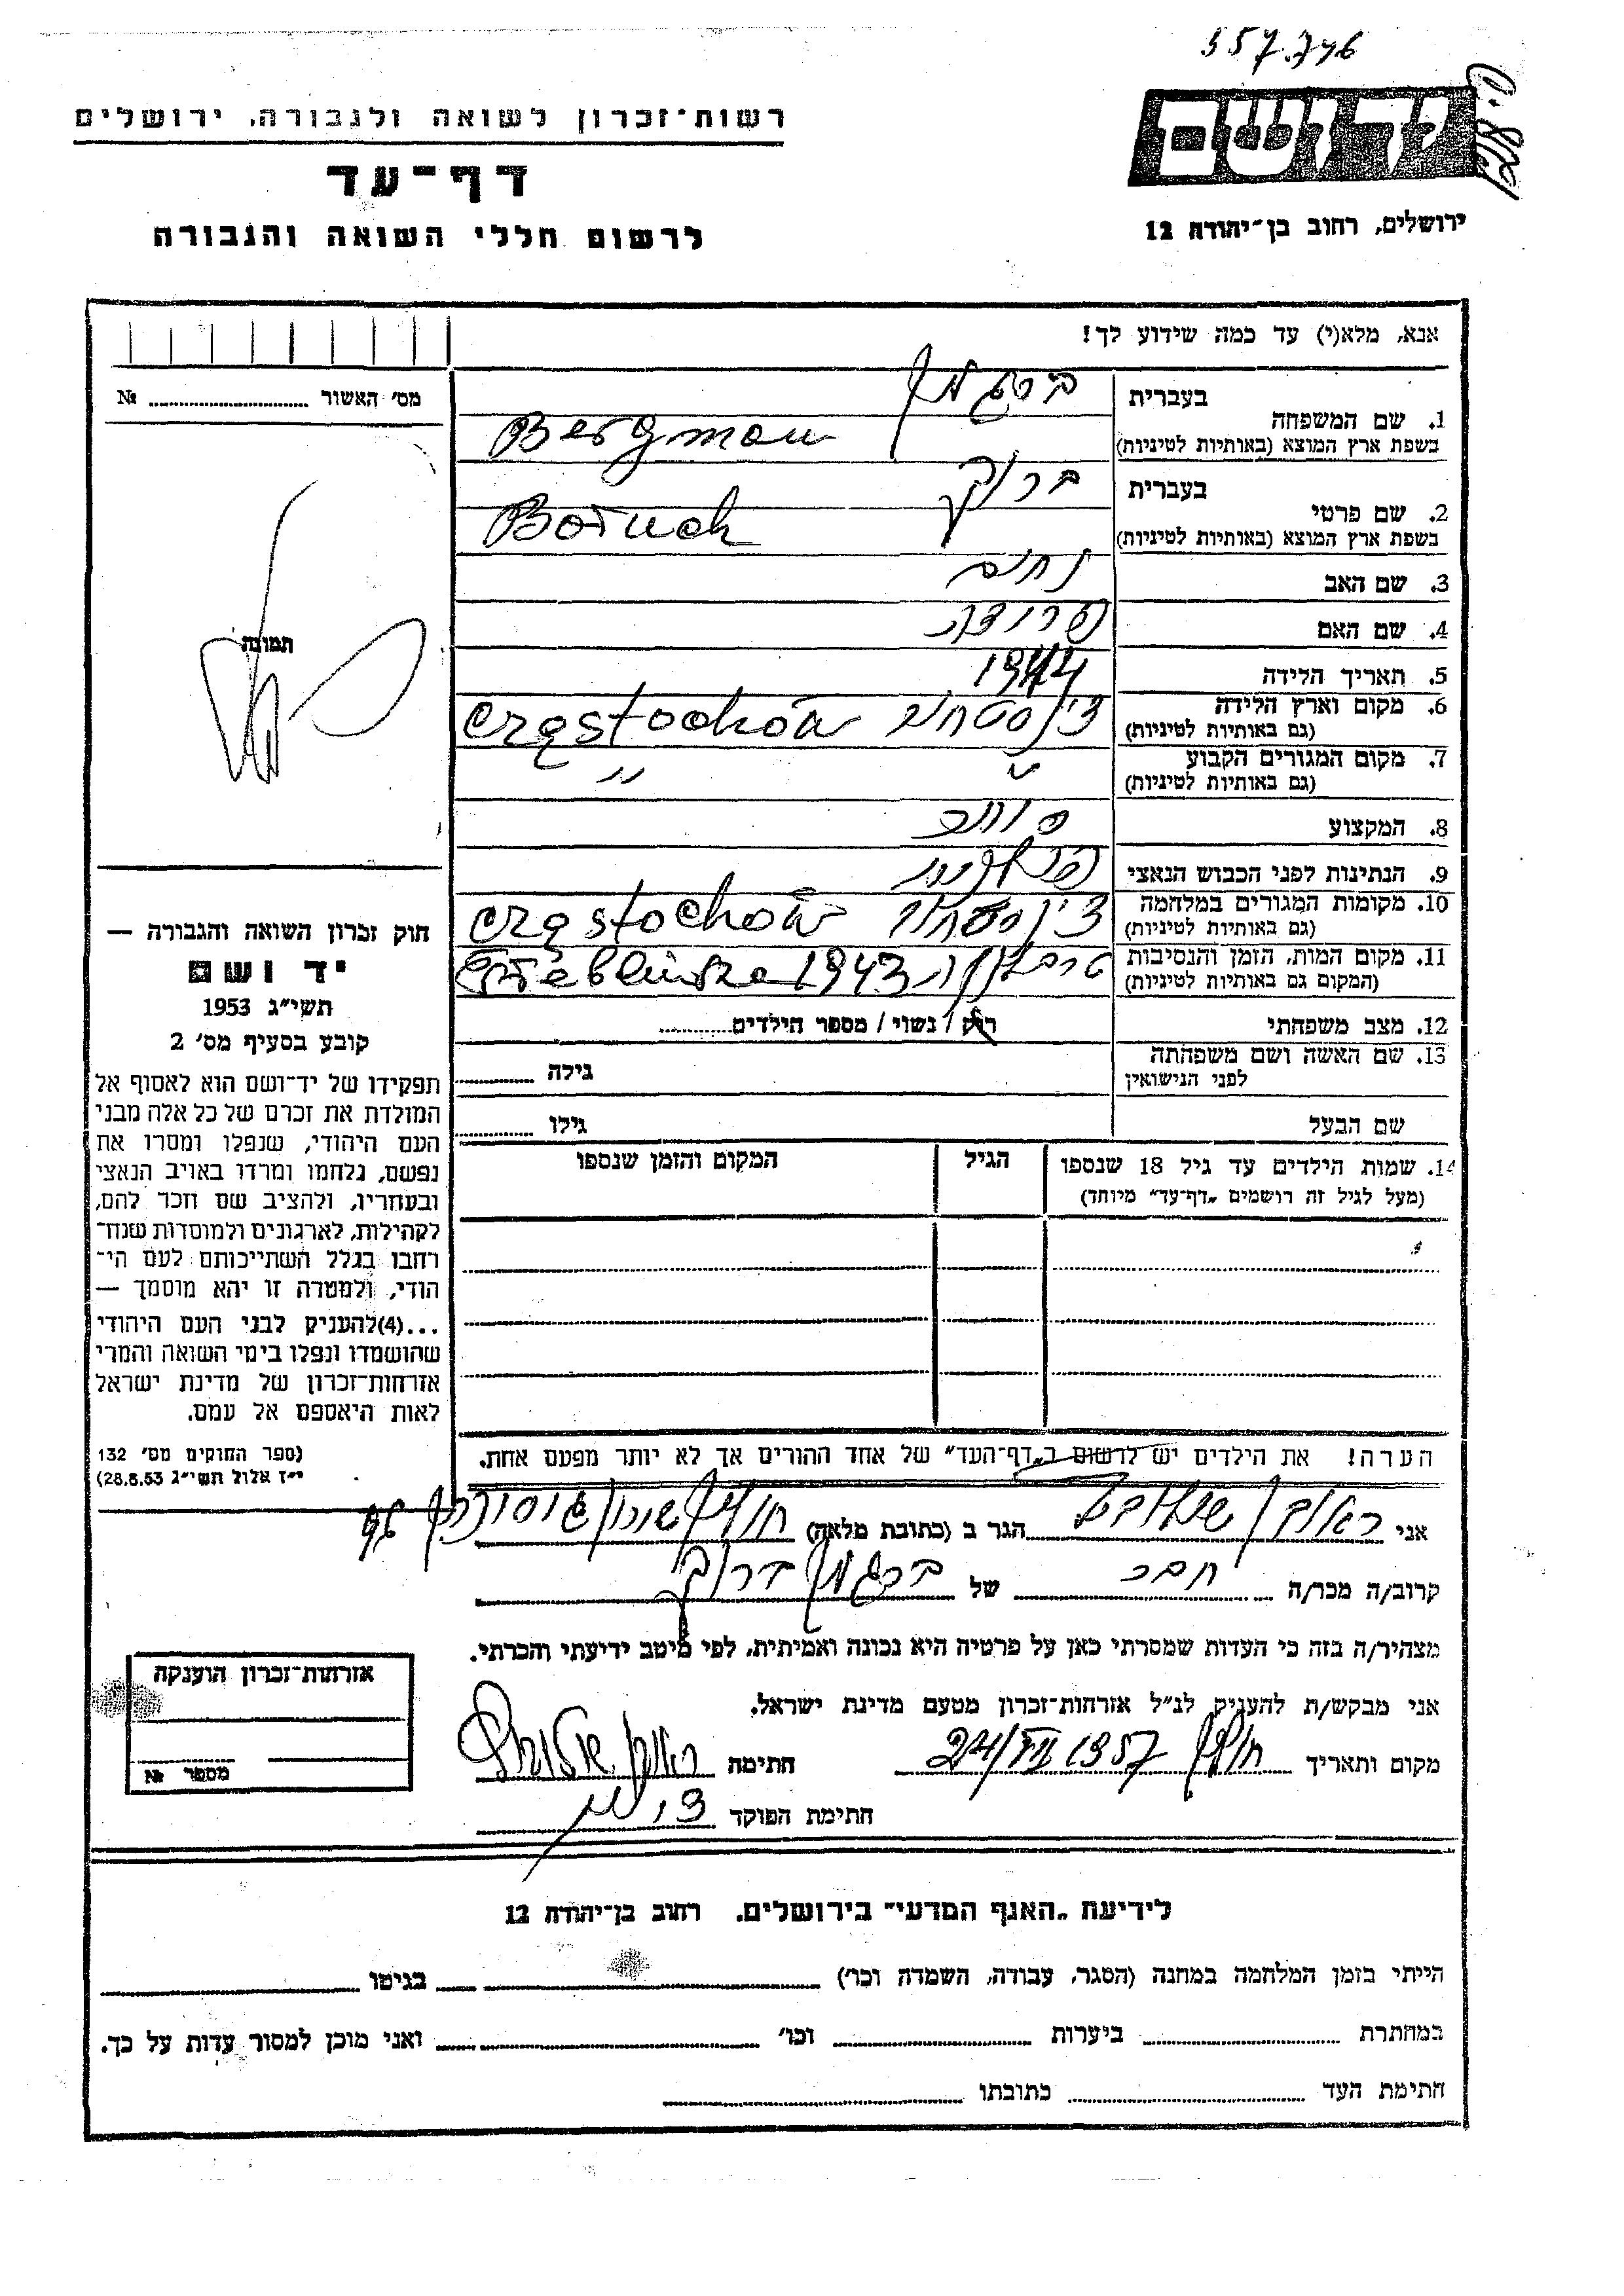 557.746
רשות־זכרון לשואה ולגבורה, ירושלים
דף־עד
לרשום חללי השואה והגבורה
יד ושם
ירושלים, רחוב בן־יהודה 12
אנא, מלא(י) עד כמה שידוע לך!
מס' האשור № 
תמונה
בעברית ברגמן
1. שם המשפחה
בשפת ארץ המוצא (באותיות לטיניות) Bergman
בעברית ברוך
2. שם פרטי
בשפת ארץ המוצא (באותיות לטיניות) Boruch
3. שם האב נחום
4. שם האם
5. תאריך הלידה
6. מקום וארץ הלידה
(גם באותיות לטיניות) Częstochów
7. מקום המגורים הקבוע " "
(גם באותיות לטיניות)
8. המקצוע סוחר
9. הנתינות לפני הכבוש הנאצי
10. מקומות המגורים במלחמה
(גם באותיות לטיניות) Częstochów
11. מקום המות, הזמן והנסיבות 1943
(המקום גם באותיות לטיניות)
12. מצב משפחתי רוק / נשוי / מספר הילדים
13. שם האשה ושם משפחתה גילה
לפני הנישואין
שם הבעל גילו
14. שמות הילדים עד גיל 18 שנספו הגיל המקום והזמן שנספו
(מעל לגיל זה רושמים „דף־עד" מיוחד)
הערה! את הילדים יש לרשום ב„דף־העד" של אחד ההורים אך לא יותר מפעם אחת.
חוק זכרון השואה והגבורה —
יד ושם
תשי״ג 1953
קובע בסעיף מס' 2
תפקידו של יד־ושם הוא לאסוף אל
המולדת את זכרם של כל אלה מבני
העם היהודי, שנפלו ומסרו את
נפשם, נלחמו ומרדו באויב הנאצי
ובעוזריו, ולהציב שם וזכר להם,
לקהילות, לארגונים ולמוסדות שנח־
רבו בגלל השתייכותם לעם הי־
הודי, ולמטרה זו יהא מוסמך —
...(4)להעניק לבני העם היהודי
שהושמדו ונפלו בימי השואה והמרי
אזרחות־זכרון של מדינת ישראל
לאות היאספם אל עמם.
(ספר החוקים מס' 132
י״ז אלול תשי״ג 28.8.53)
אני ראובן הגר ב (כתובת מלאה) חולון
קרוב/ה מכר/ה חבר של ברגמן ברוך
מצהיר/ה בזה כי העדות שמסרתי כאן על פרטיה היא נכונה ואמיתית, לפי מיטב ידיעתי והכרתי.
אני מבקש/ת להעניק לנ״ל אזרחות־זכרון מטעם מדינת ישראל.
מקום ותאריך חולון 24/VII 1957 חתימה ראובן
חתימת הפוקד
אזרחות־זכרון הוענקה
מספר №
לידיעת „האגף המדעי" בירושלים, רחוב בן־יהודה 12
הייתי בזמן המלחמה במחנה (הסגר, עבודה, השמדה וכו') בגיטו
במחתרת ביערות וכו' ואני מוכן למסור עדות על כך.
חתימת העד כתובתו